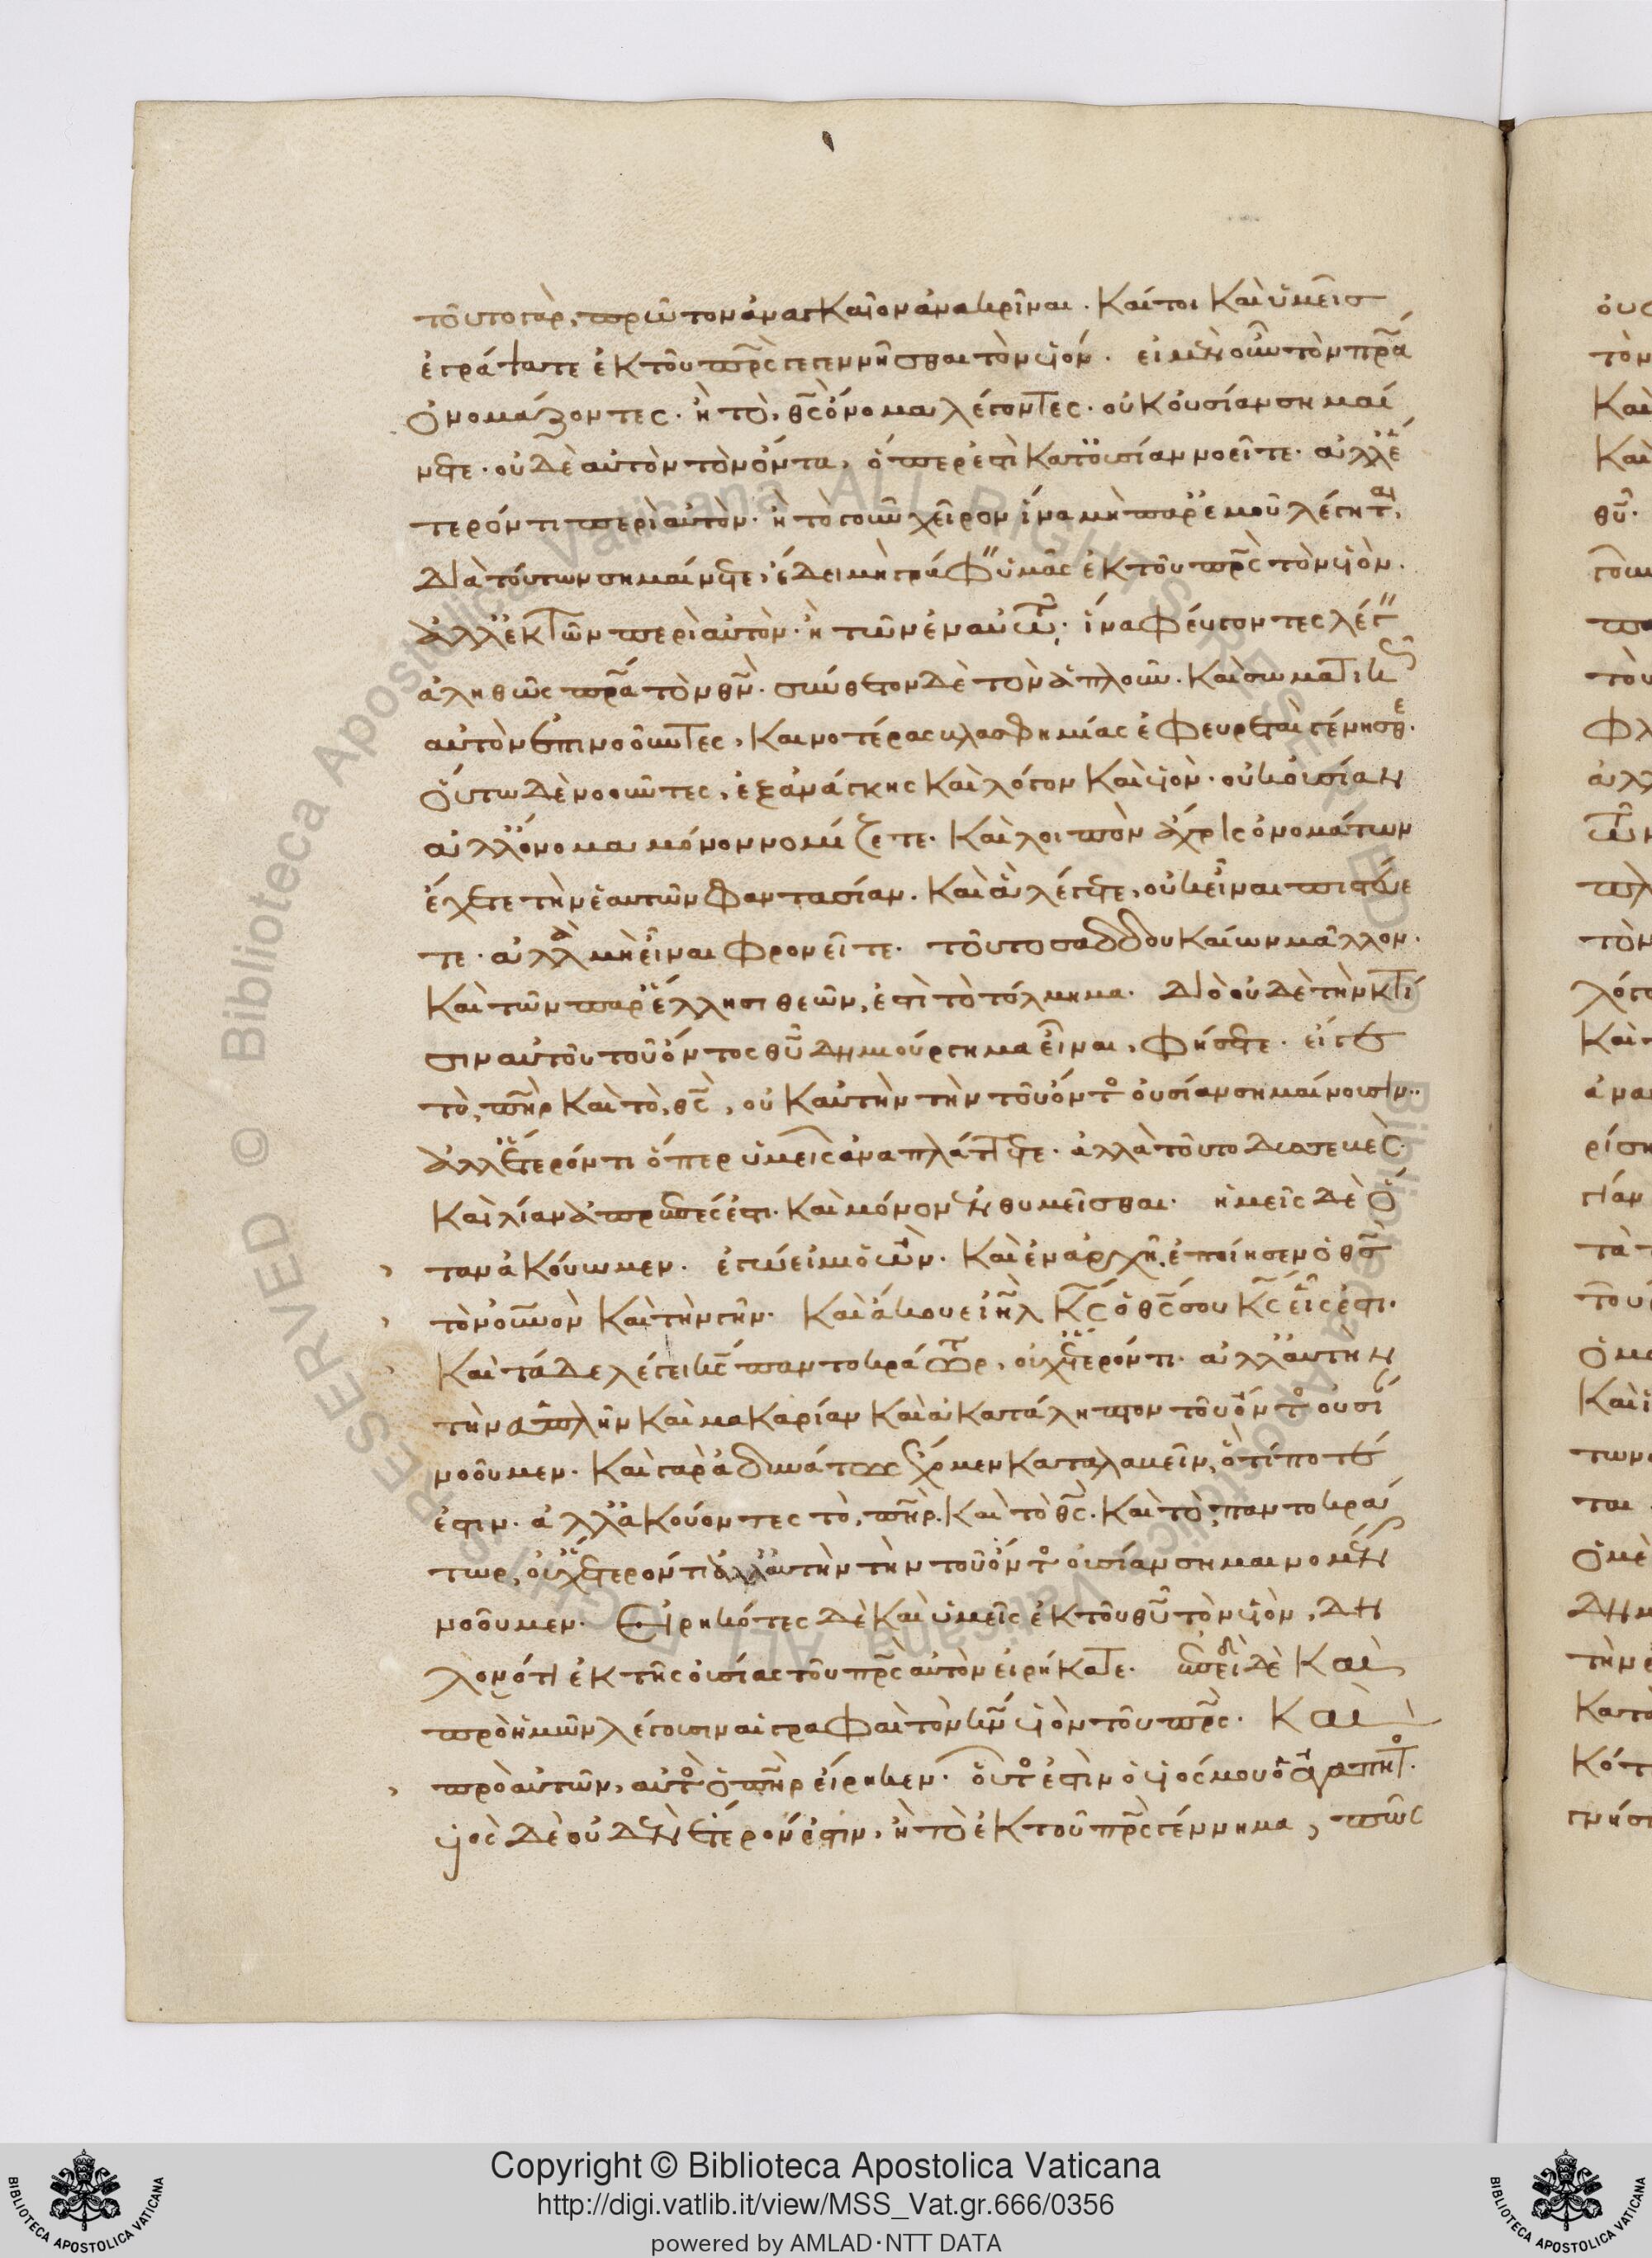 τοῦτο γὰρ, πρῶτον ἀναγκαῖον ἀνακρῖναι. Καίτοι Καὶ ὑμεῖσ
ἐγράψατε ἐκ τοῦ πρς γεγεννῆσθαι τὸν υἱόν. εἰ μὲν οὖν τὸν πρα
ὀνομάζοντες. ἢ τὸ, θς ὄνομα λέγοντες. οὐκ οὐσίαν σημαί
νετε. οὐδὲ αὐτὸν τὸν ὄντα, ὅπερ ἐστὶ Κατ' οὐσίαν νοεῖτε. ἀλλ' ἕ
τερόν τι περὶ αὐτὸν. ἢ τὸ γοῦν χεῖρον ἵνα μὴ παρ' ἐμοῦ λέγηται,
διὰ τούτων σημαίνετε, ἔδει μὴ γράφειν ὑμᾶς ἐκ τοῦ πρς τὸν υἱὸν.
ἀλλ' ἐκ τῶν περὶ αὐτὸν. ἢ τῶν ἐν αὐτῶ. ἵνα φεύγοντες λέγειν
ἀληθῶς πρα τὸν θν. σύνθετον δὲ τὸν ἁπλοῦν. Καὶ σωματικῶς
αὐτὸν ἐπινοοῦντες, Καινοτέρας βλασφημίας ἐφευρεταὶ γένησθε.
οὕτω δὲ νοοῦντες, ἐξ ἀνάγκης Καὶ λόγον Καὶ υἱὸν. οὐκ οὐσίαν
ἀλλ' ὄνομα μόνον νομίζετε. Καὶ λοιπὸν ἄχρις ὀνομάτων
ἔχετε τὴν ἑαυτῶν φαντασίαν. Καὶ ἃ λέγετε, οὐκ εἶναι πιστεύε
τε. ἀλλὰ μὴ εἶναι φρονεῖτε. τοῦτο σαδδουκαίων μᾶλλον.
Καὶ τῶν παρ' ἕλλησι θεῶν, ἐστὶ τὸ τόλμημα. διὸ οὐδὲ τὴν κτί
σιν αὐτοῦ τοῦ ὄντος θυ δημιούργημα εἶναι, φήσετε. εἴ γε
τὸ, πηρ Καὶ τὸ, θς, οὐκ αὐτὴν τὴν τοῦ ὄντος οὐσίαν σημαίνουσιν.
ἀλλ' ἕτερόν τι ὅπερ ὑμεῖς ἀναπλάττετε. ἀλλὰ τοῦτο δυσσεβὲς.
Καὶ λίαν ἀπρεπές ἐστι. Καὶ μόνον ἐνθυμεῖσθαι. ἡμεῖς δὲ ὅ
ταν ἀκούωμεν. ἐγώ εἰμι ὁ ὤν. Καὶ ἐν ἀρχῆ, ἐποίησεν ὁ θς
τὸν οὐνον Καὶ τὴν γῆν. Καὶ ἄκουε ιηλ κς ὁ θς σου κς εἷς ἐστι.
Καὶ τάδε λέγει κς παντοκράτωρ, οὐχ ἕτερόν τι. ἀλλ' αὐτὴν
τὴν ἁπλῆν Καὶ μακαρίαν Καὶ ἀκατάληπτον τοῦ ὄντος οὐσίαν
νοοῦμεν. Κἂν γὰρ ἀδυνάτως ἔχομεν καταλαβεῖν, ὅ τί ποτέ
ἐστιν. ἀλλ' ἀκούοντες τὸ, πηρ. Καὶ τὸ θς. Καὶ τὸ, παντοκρά
τωρ, οὐχ ἕτερόν τι ἀλλ' αὐτὴν τὴν τοῦ ὄντος οὐσίαν σημαινομένην
νοοῦμεν. εἰρηκότες δὲ Καὶ ὑμεῖς ἐκ τοῦ θυ τὸν υἱὸν, δη
λονότι ἐκ τῆς οὐσίας τοῦ πρς αὐτὸν εἰρήκατε. ἐπειδὴ δὲ Καὶ
πρὸ ἡμῶν λέγουσιν αἱ γραφαὶ τὸν κν υἱὸν τοῦ πρς. Καὶ
πρὸ αὐτῶν, αὐτὸς ὁ πηρ εἴρηκεν. οὗτός ἐστιν ὁ υἱός μου ὁ ἀγαπητός.
υἱὸς δὲ οὐδὲν ἕτερόν ἐστιν, ἢ τὸ ἐκ τοῦ πρς γέννημα, πῶς
RESERVED © Biblioteca Apostolica Vaticana ALL RIGHTS RESERVED © Biblioteca Apostolica Vaticana ALL RIGHTS
Copyright © Biblioteca Apostolica Vaticana
http://digi.vatlib.it/view/MSS_Vat.gr.666/0356
powered by AMLAD·NTT DATA
BIBLIOTECA APOSTOLICA VATICANA
BIBLIOTECA APOSTOLICA VATICANA